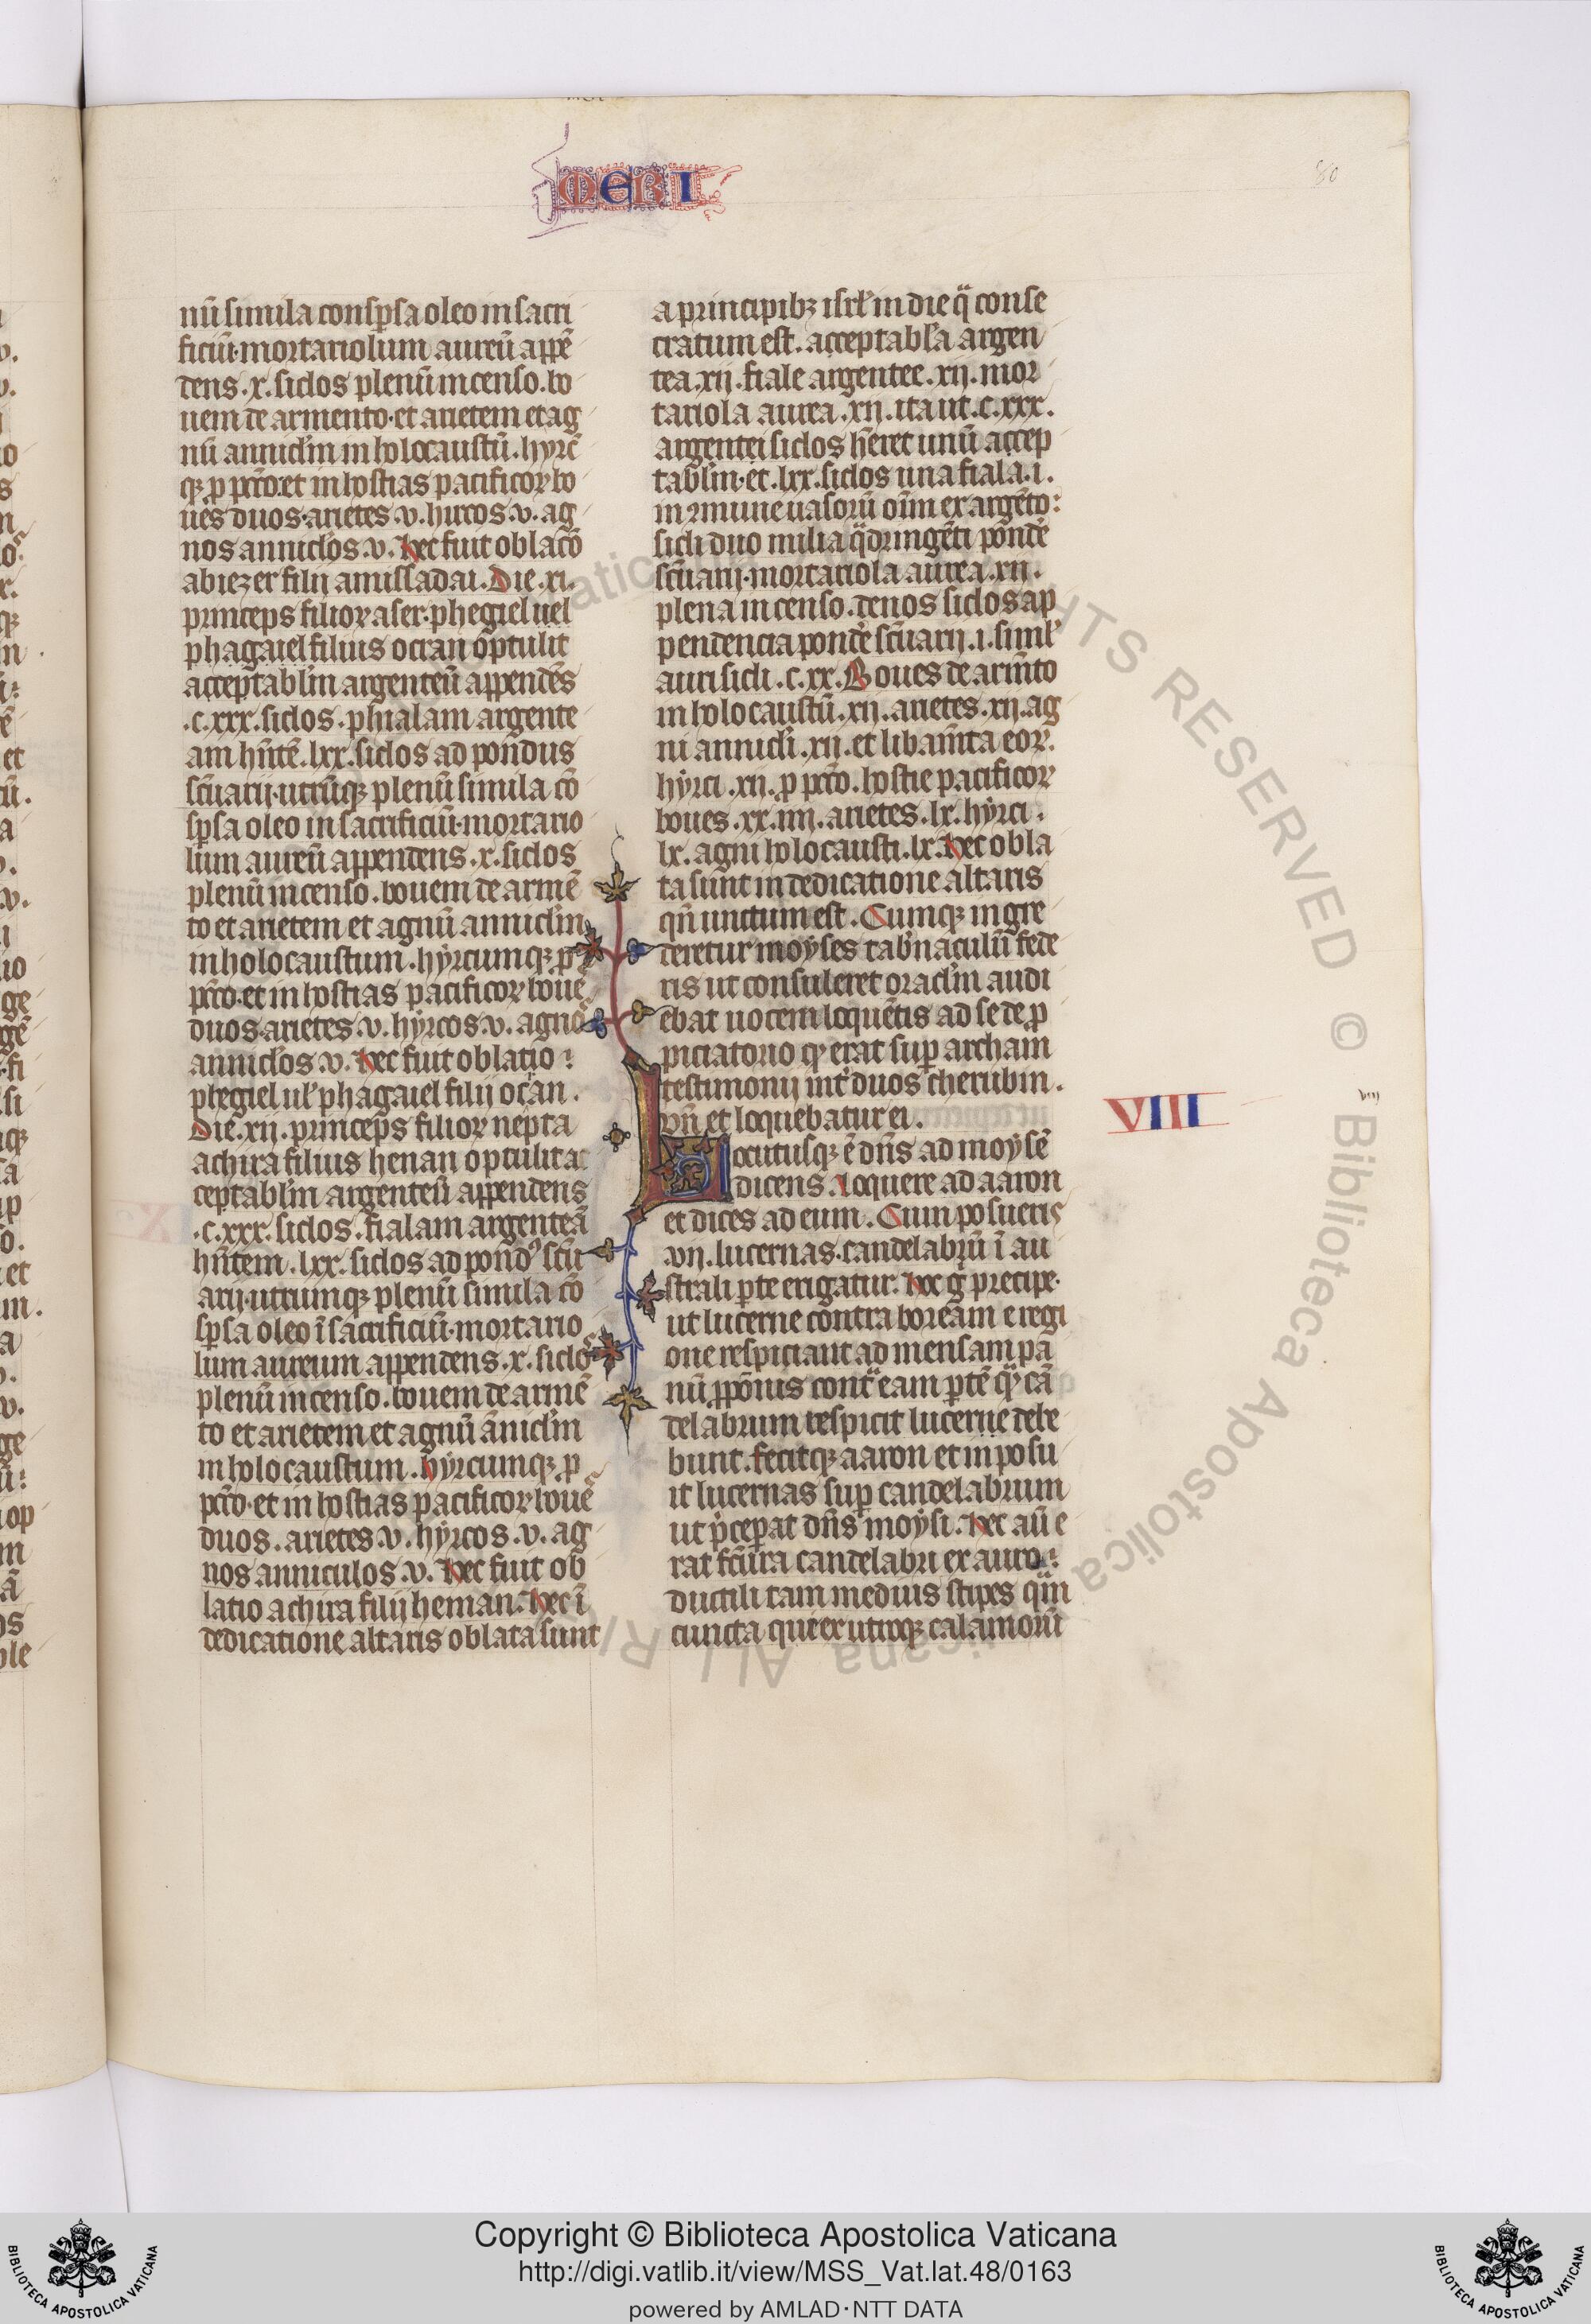 MERI
80
nū simila consp̄sa oleo in sacri
ficiū·mortariolum aureū appē
dens .x. siclos plenū incenso. bo
uem de armento·et arietem et ag
nū annicl̄m in holocaustū. hyrc̄
qꝫ ꝓ pcc̄o·et in hostias pacificoꝝ bo
ues duos·arietes .v. hircos .v. ag
nos annicl̄os .v. Hec fuit oblac̄o
abiezer filij amissadai. Die .xi.
princeps filioꝝ aser·phegiel uel
phagaiel filius ocran optulit
acceptabl̄m argenteū appendēs
.c.xxx. siclos. phialam argente
am hn̄tē .lxx. siclos ad pondus
sc̄uarij·utrūqꝫ plenū simila cō
sp̄sa oleo in sacrificiū·mortario
lum aureū appendens .x. siclos
plenū incenso. bouem de armē
to et arietem et agnū annicl̄m
in holocaustum. hyrcumqꝫ ꝓ
pcc̄o·et in hostias pacificoꝝ boue
duos·arietes .v. hyrcos .v. agno
annicl̄os .v. Hec fuit oblatio
phegiel ul̓ phagaiel filij ocran.
Die .xij. princeps filioꝝ nepta
achira filius henan optulit ac
ceptabl̄m argenteū appendens
.c.xxx. siclos. fialam argenteā
hn̄tem .lxx. siclos ad pondꝰ sc̄u
arij·utrumqꝫ plenū simila cō
sp̄sa oleo ī sacrificiū·mortario
lum aureum appendens .x. siclo
plenū incenso. bouem de armē
to et arietem et agnū ānicl̄m
in holocaustum. Hyrcumqꝫ ꝓ
pcc̄o·et in hostias pacificoꝝ boue
duos. arietes .v. hyrcos .v. ag
nos anniculos .v. Hec fuit ob
latio achira filij heman. Hec ī
dedicatione altaris oblata sunt
a principibꝫ isrl̓ in die q̄ conse
cratum est. acceptabl̄a argen
tea .xij. fiale argentee .xij. mor
tariola aurea .xij. ita ut .c.xxx.
argentei siclos hēret unū accep
tabl̄m·et .lxx. siclos una fiala .i.
in 2mune uasorū oīm ex argēto:
sicli duo milia q̄dringēti pondē
sc̄uarij·mortariola aurea .xij.
plena incenso. denos siclos ap
pendencia pondē sc̄uarij .i. siml̓
auri sicli .c.xx. Boues de armn̄to
in holocaustū .xij. arietes .xij. ag
ni annicl̄i .xij. et libam̄ta eoꝝ.
hyrci .xij. ꝓ pcc̄o. hostie pacificoꝝ
boues .xx.iiij. arietes .lx. hyrci.
lx. agni holocausti .lx. Hec obla
ta sunt in dedicatione altaris
qn̄ unctum est. Cumqꝫ ingre
deretur moyses tab̓naculū fede
ris ut consuleret oracl̄m audi
ebat uocem loquētis ad se de ꝓ
piciatorio qꝫ erat sup̄ archam
testimonij int̓ duos cherubin.
vn̄ et loquebatur ei.
VIII
viij
Locutusqꝫ ē dn̄s ad moysē
dicens. Loquere ad aaron
et dices ad eum. Cum posueris
.vij. lucernas·candelabrū ī au
strali ꝑte erigatur. Hoc g̊ precipe·
ut lucerne contra boream e regi
one respiciant ad mensam pa
nū ꝓpōnis contᷓ eam ꝑtē qꝫ cā
delabrum respicit lucerne debe
bunt. fecitqꝫ aaron et inposu
it lucernas sup̄ candelabrum
ut p̓ceperat dn̄s moysi. Hec aū e
rat fc̄ura candelabri ex auro
ductili tam medius stipes qᷓm
cuncta que ex utroqꝫ calamorū
Copyright © Biblioteca Apostolica Vaticana
http://digi.vatlib.it/view/MSS_Vat.lat.48/0163
powered by AMLAD·NTT DATA
BIBLIOTECA APOSTOLICA VATICANA
BIBLIOTECA APOSTOLICA VATICANA